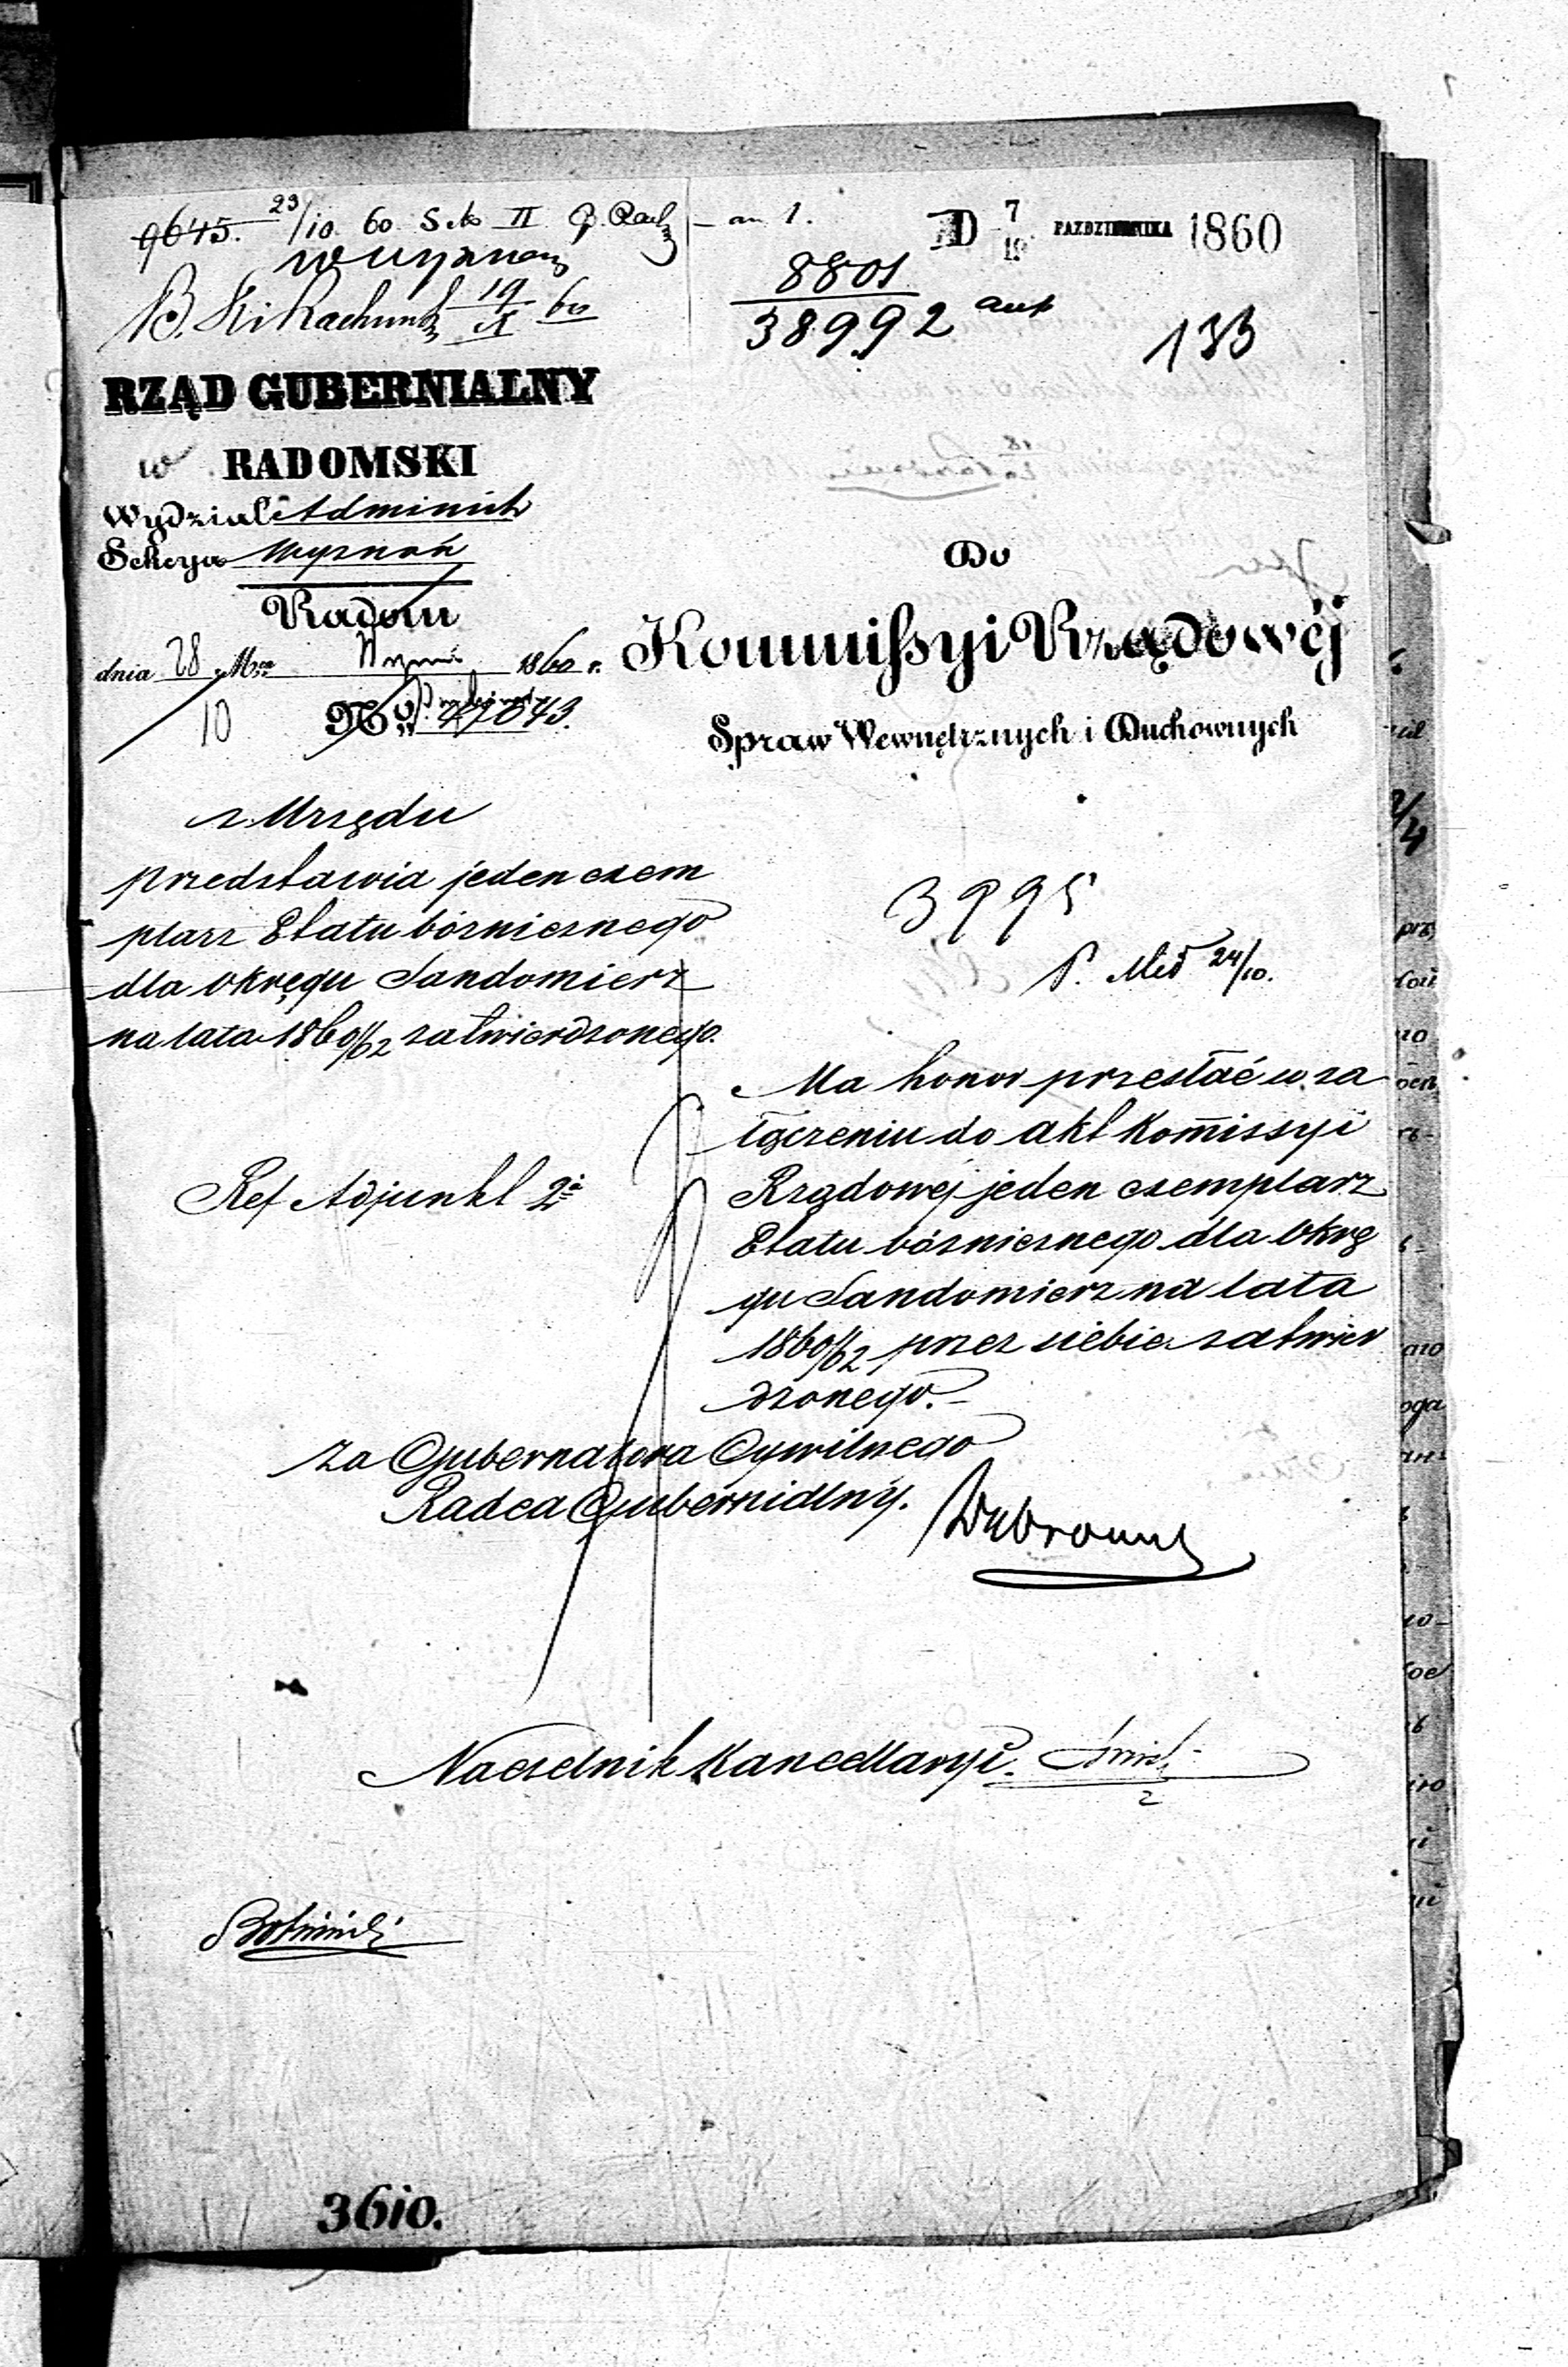 9645. 23/10 60 Sek II
wyznań
19/X 60
an 1.
D 7/19 PAZDZIERNIKA 1860
8801
38992
133
RZĄD GUBERNIALNY
w RADOMSKI
Wydział Administr
Sekcya Wyznań
Radom
dnia 28 Mca Wrześ 1860 r.
10 Października
No 47043.
Do
Kommissyi Rządowéj
Spraw Wewnętrznych i Duchownych
z Urzędu
przedstawia jeden exem
plarz Etatu bóżnicznego
dla Okręgu Sandomierz
na lata 1860/62 zatwierdzonego.
3995
24/10.
Ref Adjunkt 2i
Ma honor przesłać w za
łączeniu do akt Kommissyi
Rządowej jeden exemplarz
Etatu bóżnicznego dla Okrę
gu Sandomierz na lata
1860/62 przez siebie zatwier
dzonego.–
za Gubernatora Cywilnego
Radca Gubernialny.
Naczelnik Kancellaryi.
3610.